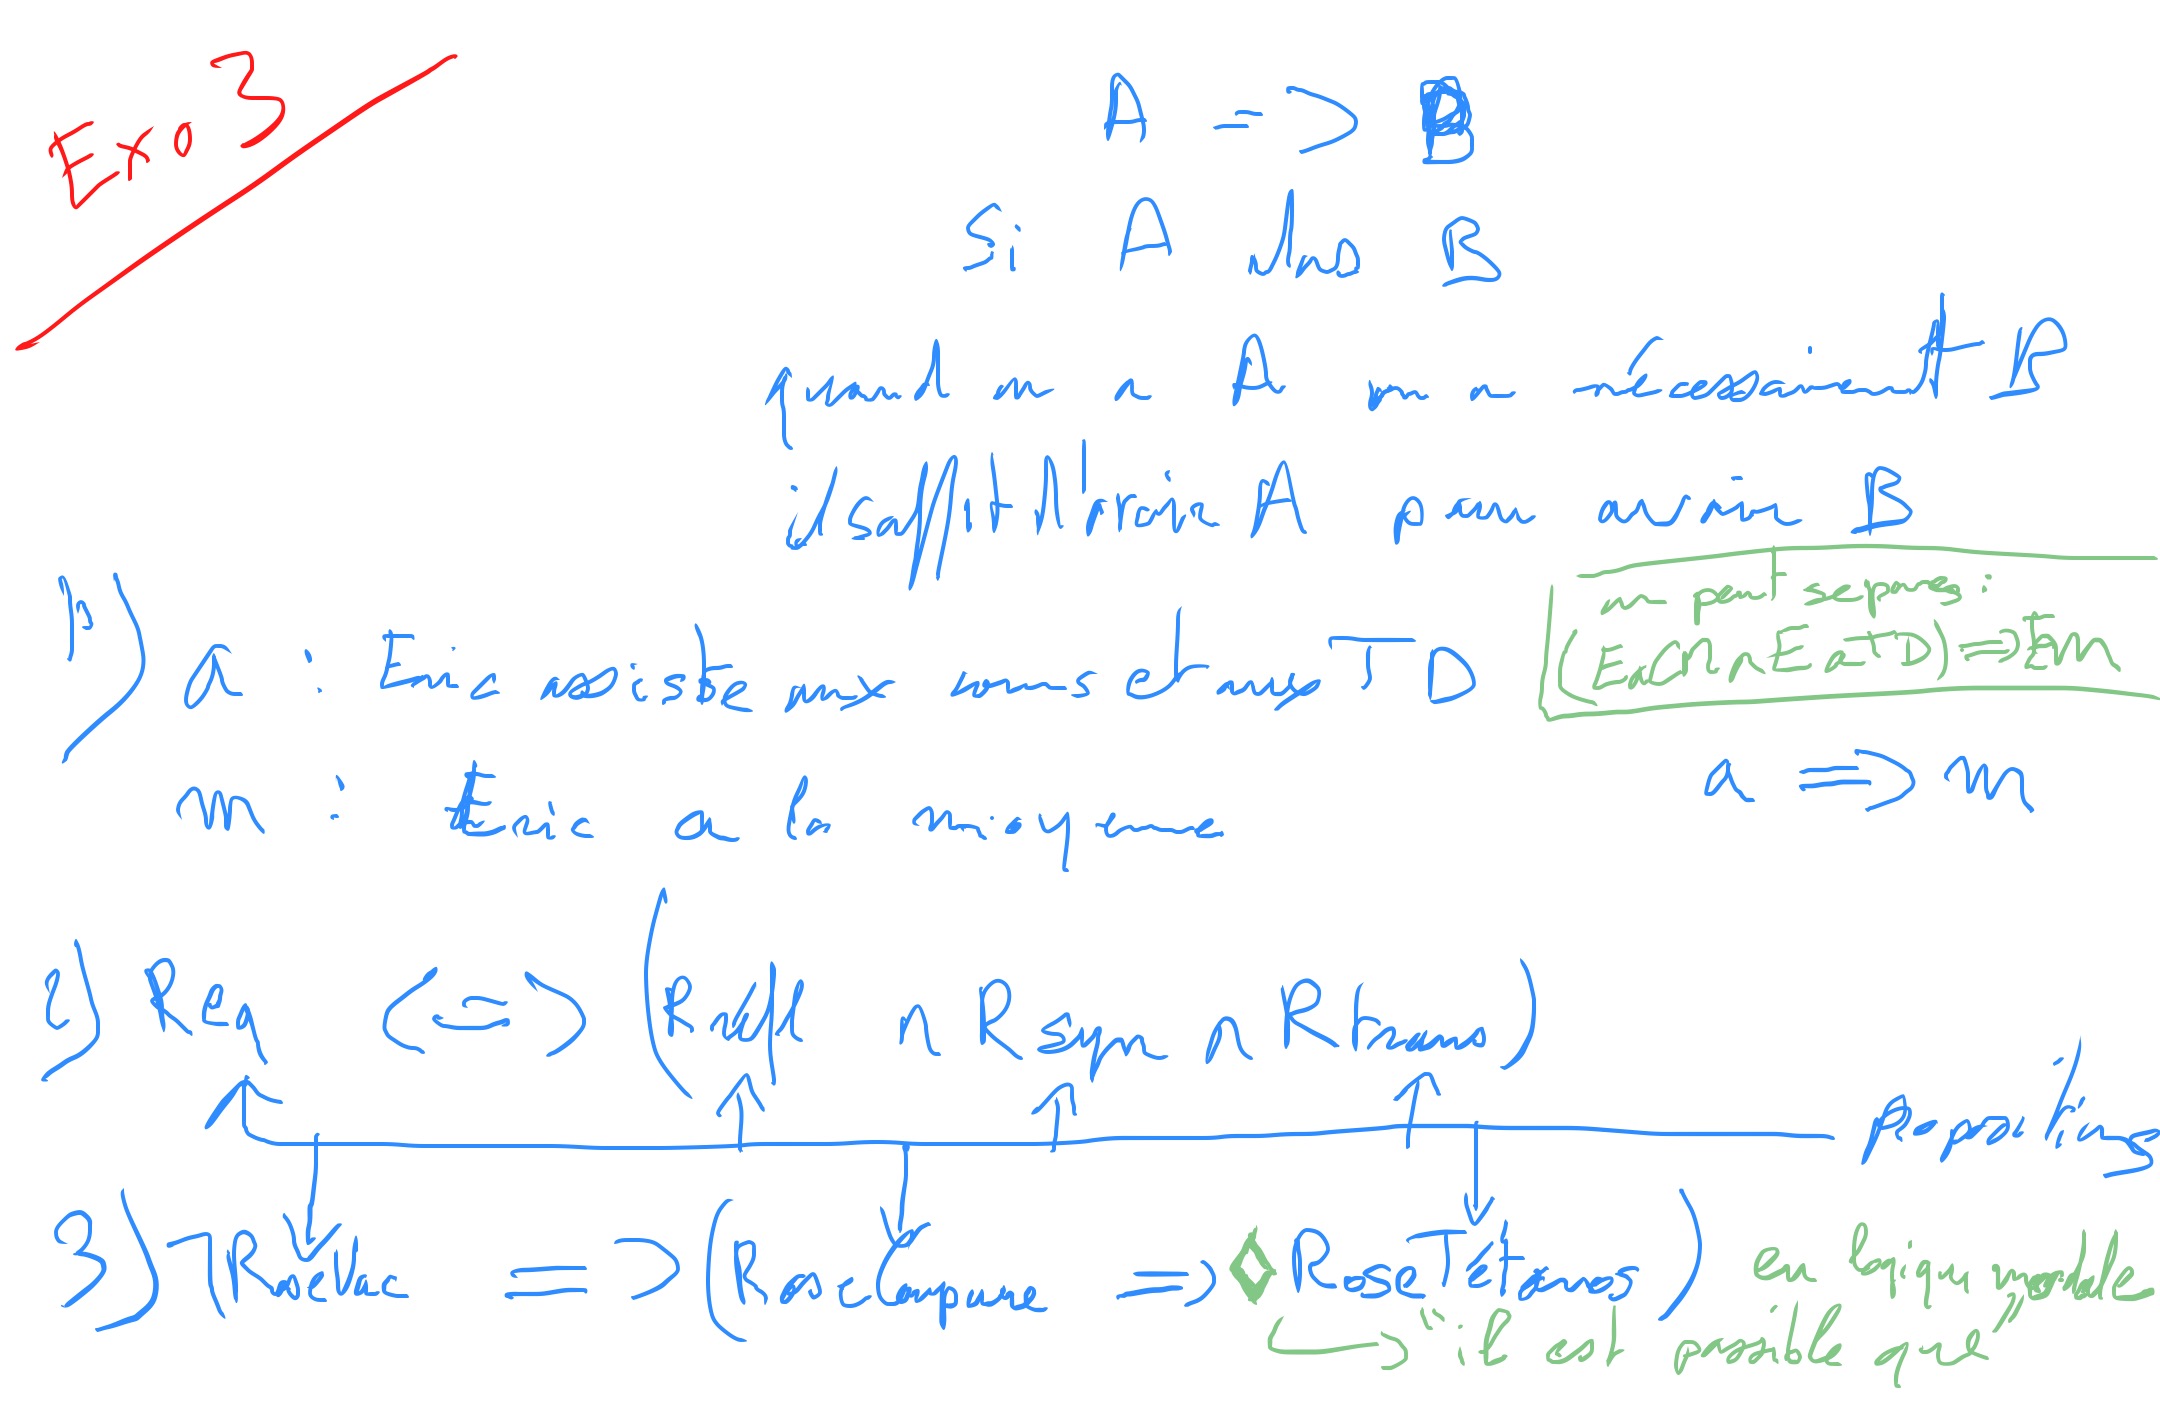 Exo 3
A => B
Si A alors B
quand on a A on a nécessairement B
il suffit d'avoir A pour avoir B
1) a : Eric assiste aux cours et aux TD
on peut séparer :
(EaCM ∧ EaTD) => Em
a => m
m : Eric a la moyenne
2) Req <=> (Rréfl ∧ Rsym ∧ Rtrans)
propositions
3) ¬RoseVac => (RoseCoupure => ◊RoseTétanos) en logique modale
"il est possible que"